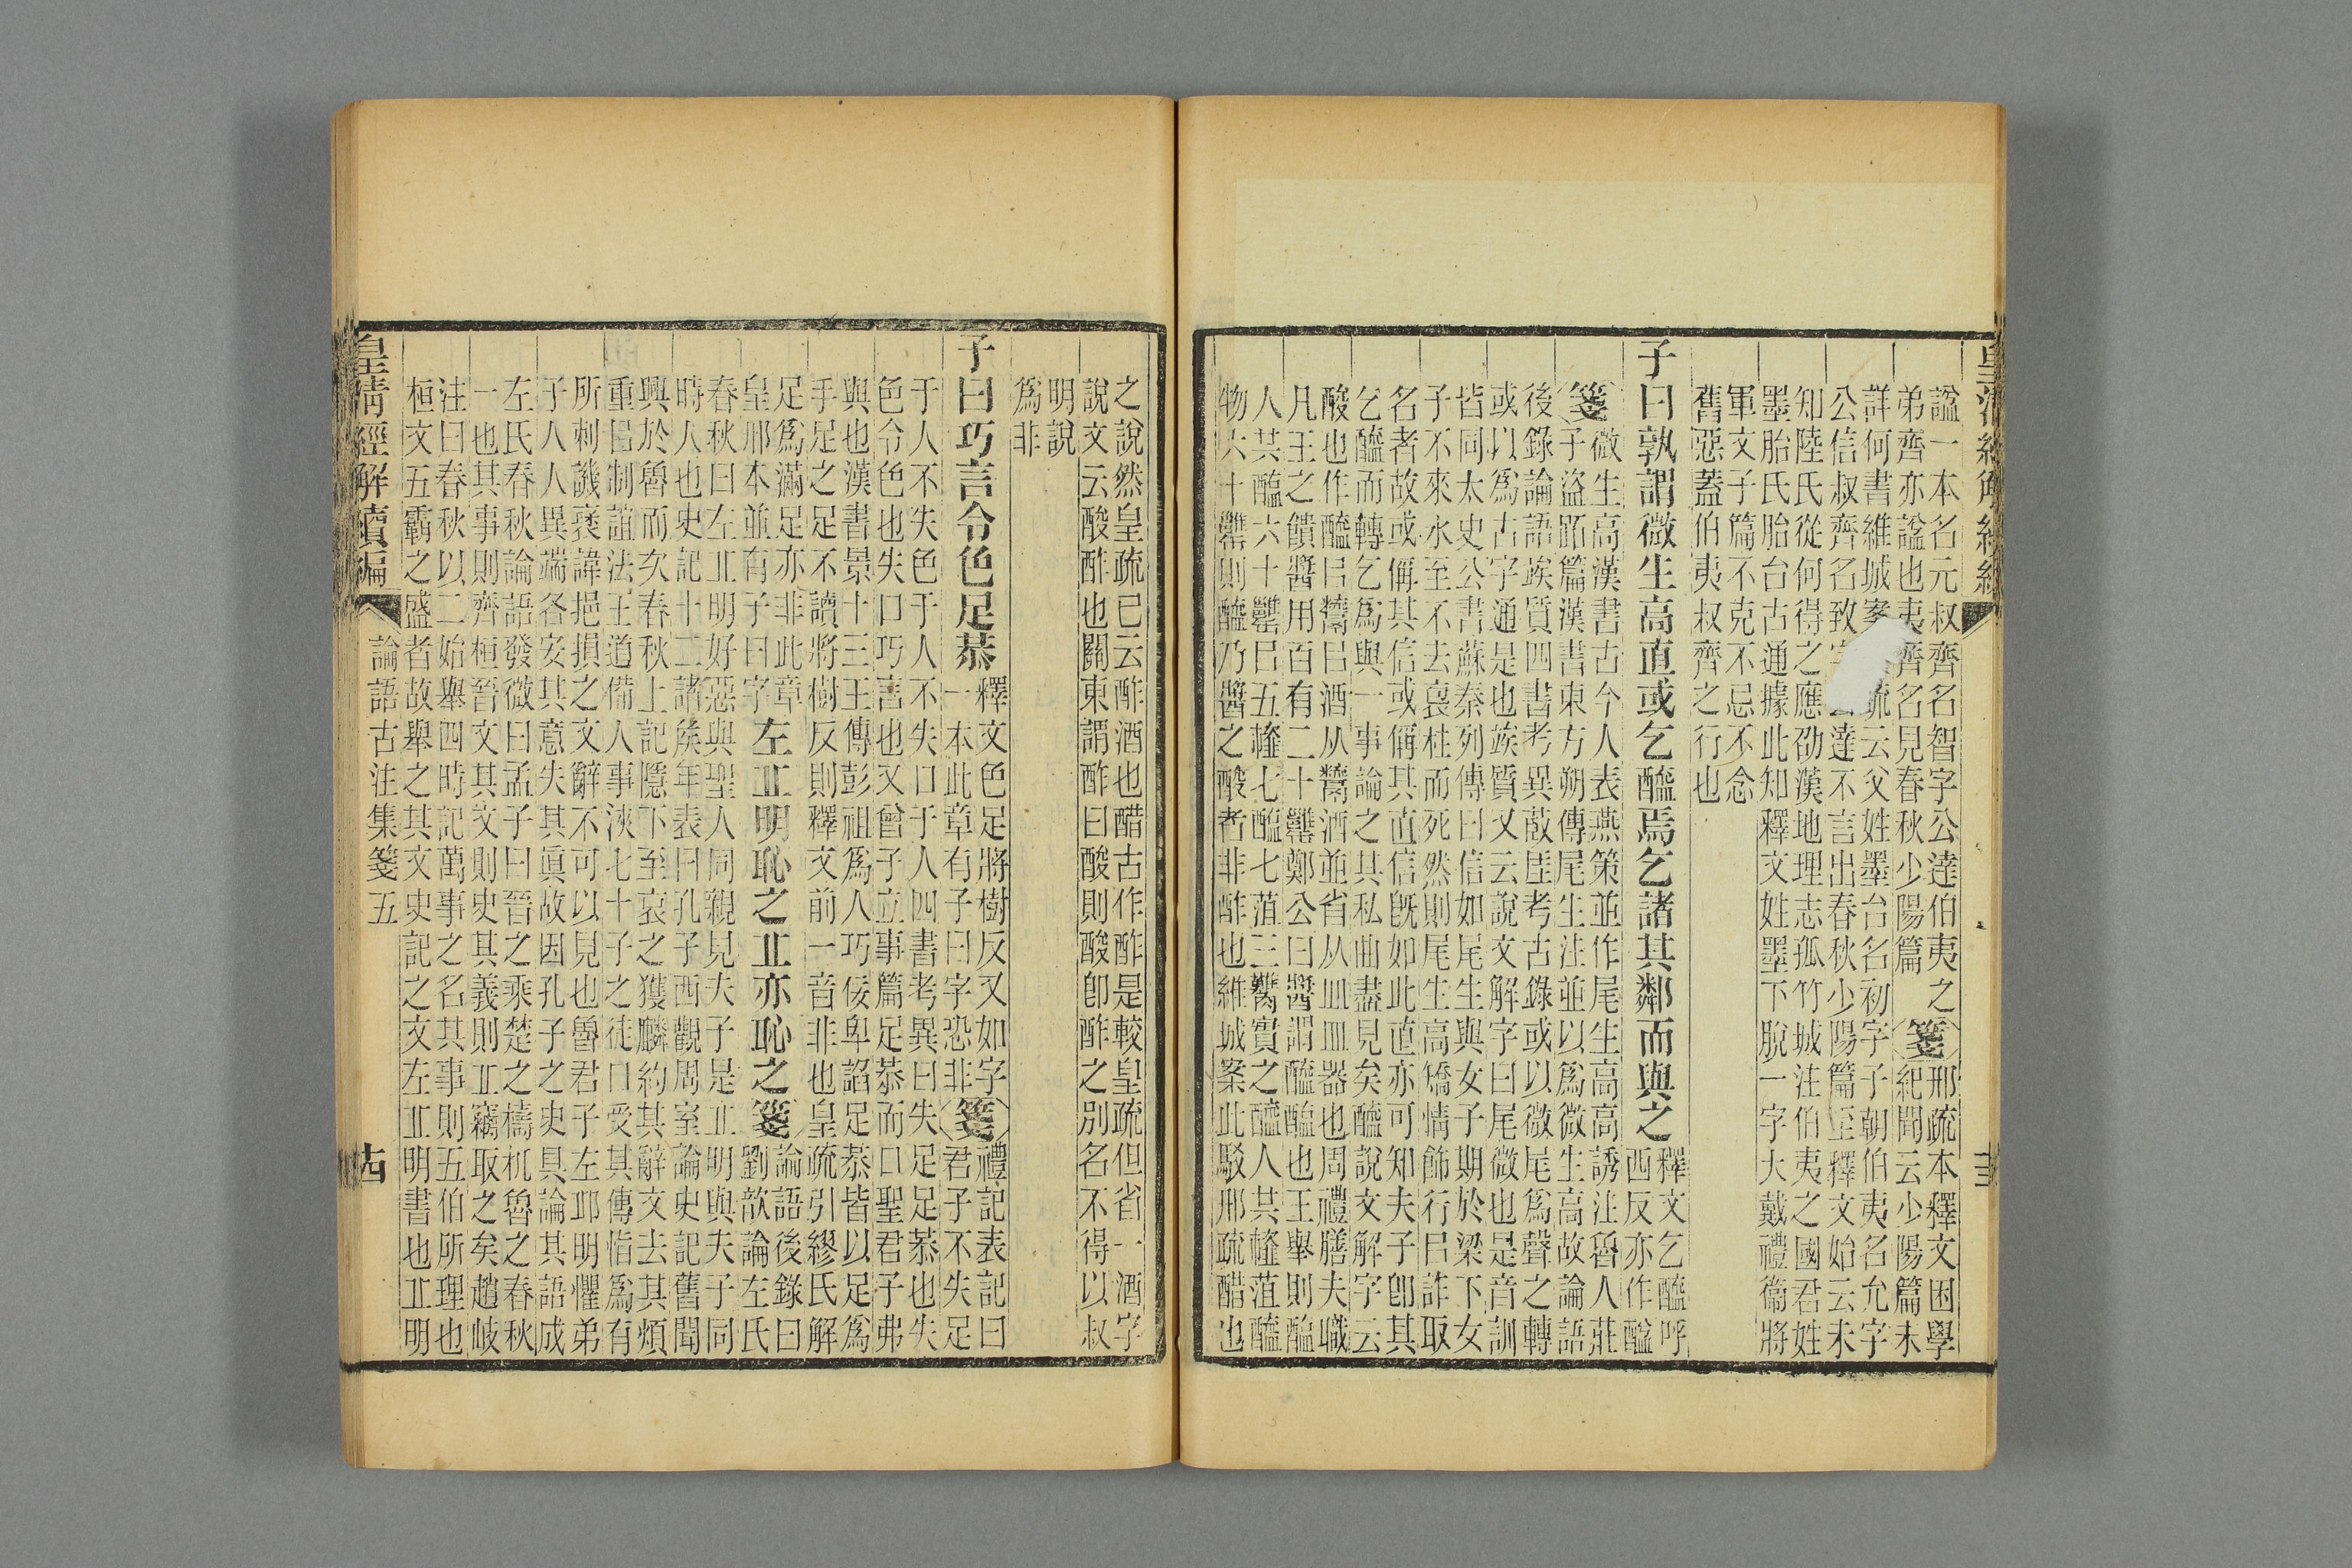 謚一本名元叔齊名智字公達伯夷之箋邢疏本釋文困學
弟齊亦謚也夷齊名見春秋少陽篇紀聞云少陽篇未
詳何書維城案疏云父姓墨台名初字子朝伯夷名允字
公信叔齊名致字達不言出春秋少陽篇至釋文始云未
知陸氏從何得之應劭漢地理志孤竹城注伯夷之國君姓
墨胎氏胎台古通據此知釋文姓墨下脫一字大戴禮衞將
軍文子篇不克不忌不念
舊惡蓋伯夷叔齊之行也
子曰孰謂微生高直或乞醯焉乞諸其鄰而與之
釋文乞醯呼
西反亦作醯
箋微生高漢書古今人表燕策並作尾生高高誘注魯人莊
子盜跖篇漢書東方朔傳尾生注並以爲微生高故論語
後錄論語竢質四書考異敔厓考古錄或以微尾爲聲之轉
或以爲古字通是也竢質又云說文解字曰尾微也是音訓
皆同太史公書蘇秦列傳曰信如尾生與女子期於梁下女
子不來水至不去裒柱而死然則尾生高矯情飾行㠯詐取
名者故或偁其信或偁其直信旣如此直亦可知夫子卽其
乞醯而轉乞爲與一事論之其私曲盡見矣醯說文解字云
酸也作醯㠯鬻㠯酒从鬻酒並省从皿皿器也周禮膳夫職
凡王之饋醬用百有二十罋鄭公曰醬謂醯醢也王舉則醢
人共醢六十罋㠯五齏七醢七菹三臡實之醯人共齏菹醯
物六十罋則醯乃醬之酸者非酢也維城案此駁邢疏醋也
之說然皇疏已云酢酒也醋古作酢是較皇疏但省一酒字
說文云酸酢也關東謂酢曰酸則酸卽酢之別名不得以叔
明說
爲非
子曰巧言令色足恭
釋文色足將樹反又如字箋禮記表記曰
一本此章有子曰字恐非君子不失足
于人不失色于人不失口于人四書考異曰失足足恭也失
色令色也失口巧言也又曾子立事篇足恭而口聖君子弗
與也漢書景十三王傳彭祖爲人巧佞卑諂足恭皆以足爲
手足之足不讀將樹反則釋文前一音非也皇疏引繆氏解
足爲滿足亦非此章
皇邢本並有子曰字
左丘明恥之丘亦恥之箋
論語後錄曰
劉歆論左氏
春秋曰左丘明好惡與聖人同親見夫子是丘明與夫子同
時人也史記十二諸侯年表曰孔子西觀周室論史記舊聞
興於魯而次春秋上記隱下至哀之獲麟約其辭文去其煩
重㠯制誼法王道備人事浹七十子之徒口受其傳恉爲有
所刺譏襃諱挹損之文辭不可以見也魯君子左邱明懼弟
子人人異端各安其意失其眞故因孔子之史具論其語成
左氏春秋論語發微曰孟子曰晉之乘楚之檮杌魯之春秋
一也其事則齊桓晉文其文則史其義則丘竊取之矣趙岐
注曰春秋以二始舉四時記萬事之名其事則五伯所理也
桓文五霸之盛者故舉之其文史記之文左丘明書也丘明
皇清經解續編
論語古注集箋五
古